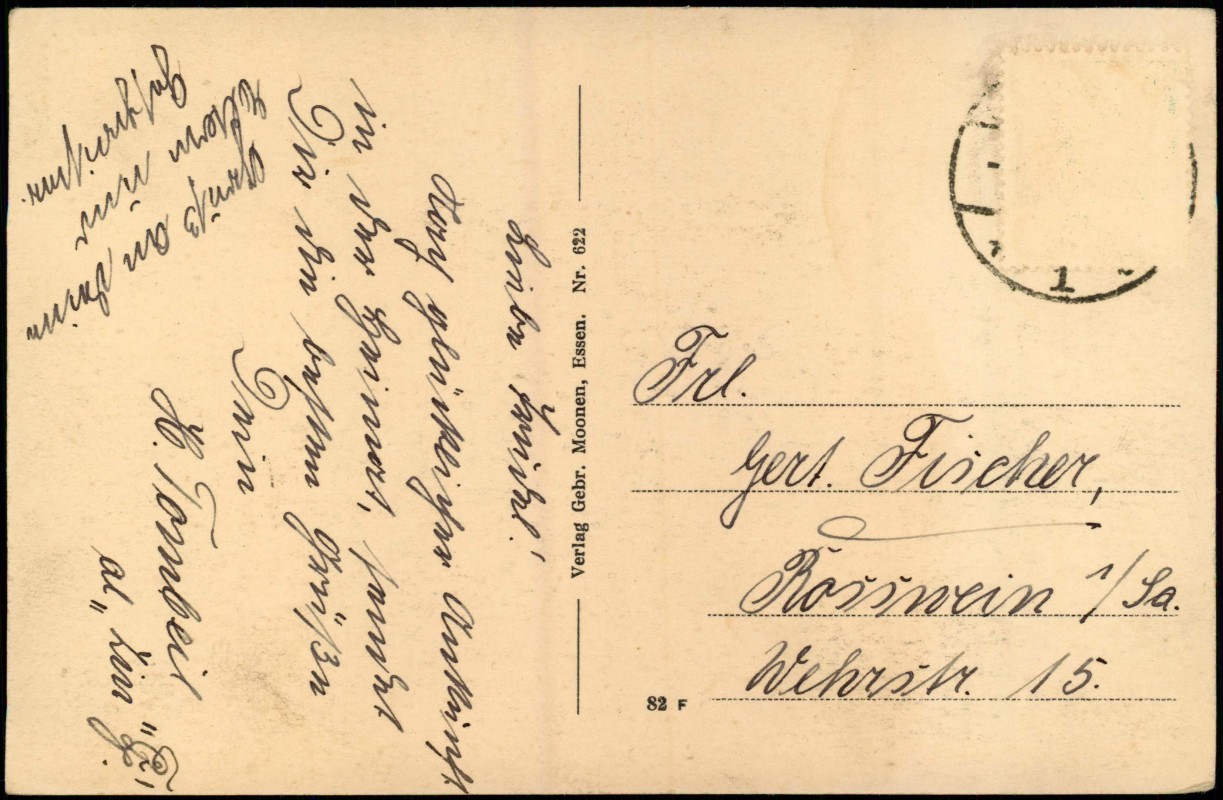 Liebe Trudel!
Nach glücklicher Ankunft
in der Heimat, sendet
Dir die besten Grüßen
Dein
H. Tombeil
Gruß an deine
Eltern und
Geschwister.
Verlag Gebr. Moonen, Essen. Nr. 622
82 F
1
Frl.
Gert. Fischer,
Rosswein i/Sa.
Wehrstr. 15.